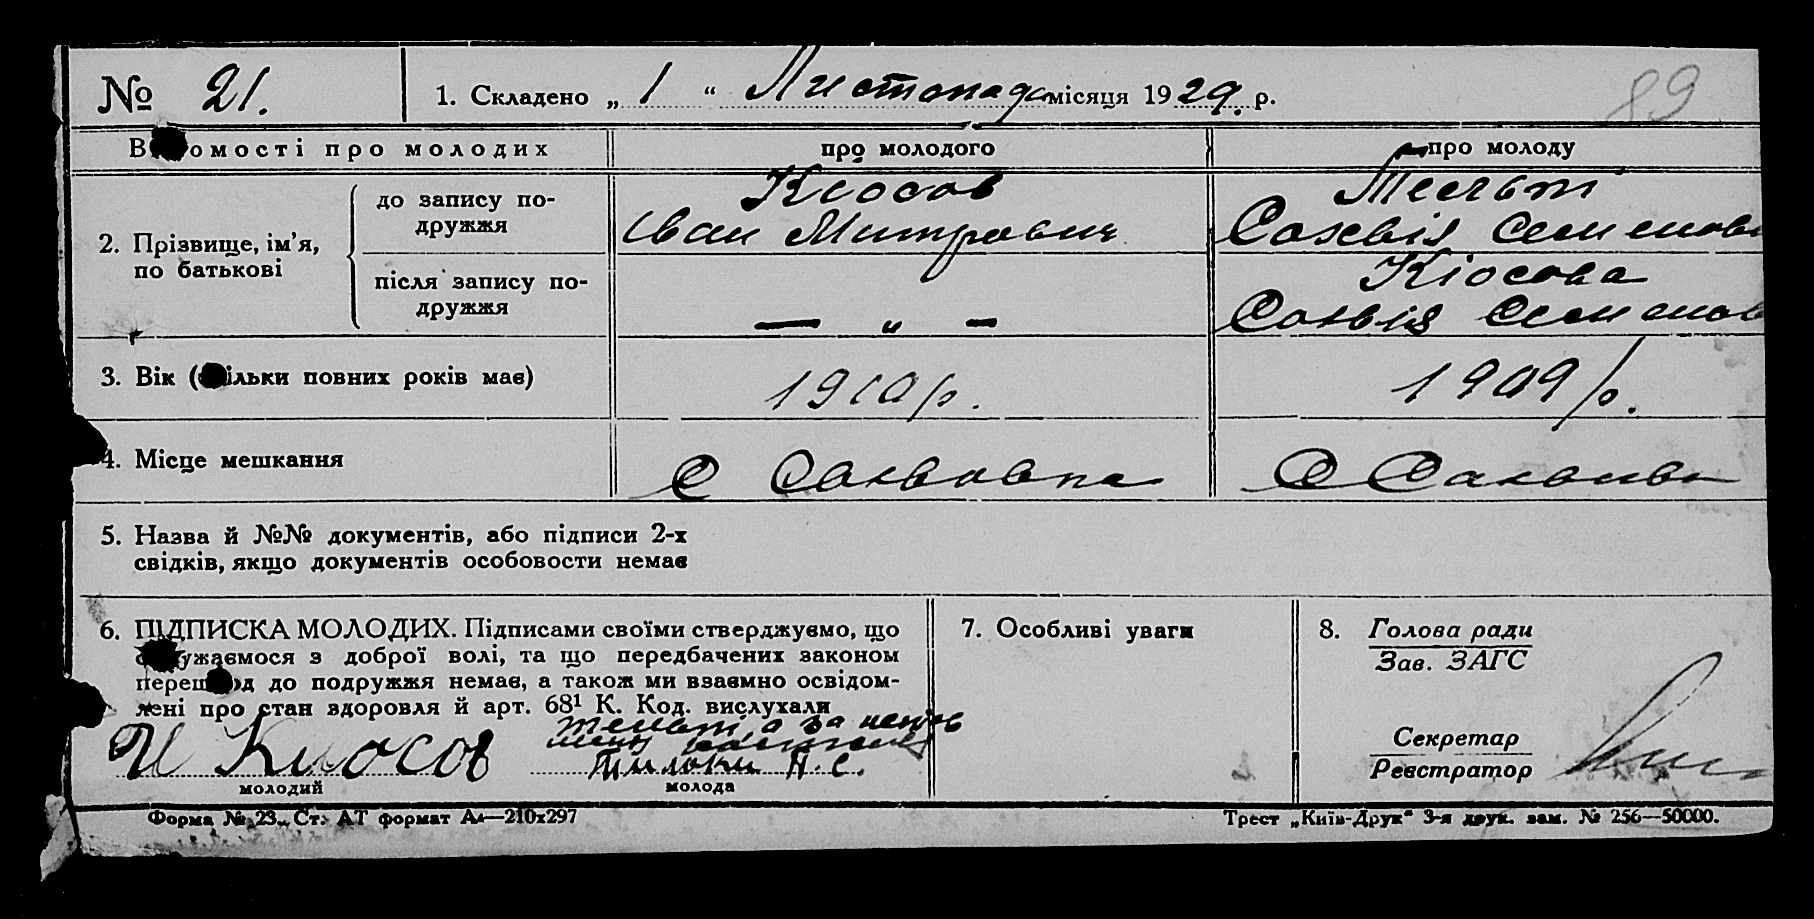 № 21. 1. Складено „ 1 “ Листопада місяця 1929. р. 89
Відомості про молодих про молодого про молоду
2. Прізвище, ім’я, по батькові
до запису по-
дружжя
Кіосов
Іван Митрович
Семенов
після запису по-
дружжя
— „ —
Кіосова
Семенов
3. Вік (скільки повних років має) 1910 р. 1909 р.
4. Місце мешкання С С
5. Назва й №№ документів, або підписи 2-х
свідків, якщо документів особовости немає
6. ПІДПИСКА МОЛОДИХ. Підписами своїми стверджуємо, що
одружаємося з доброї волі, та що передбачених законом
перешкод до подружжя немає, а також ми взаємно освідом-
лені про стан здоровля й арт. 68¹ К. Код. вислухали
И Киосов
молодий
а за
Н. С.
молода
7. Особливі уваги
8. Голова ради
Зав. ЗАГС
Секретар
Реєстратор
Форма № 23. Ст. АТ формат А₄—210х297 Трест „Київ-Друк“ 3-я друк. зам. № 256—50000.